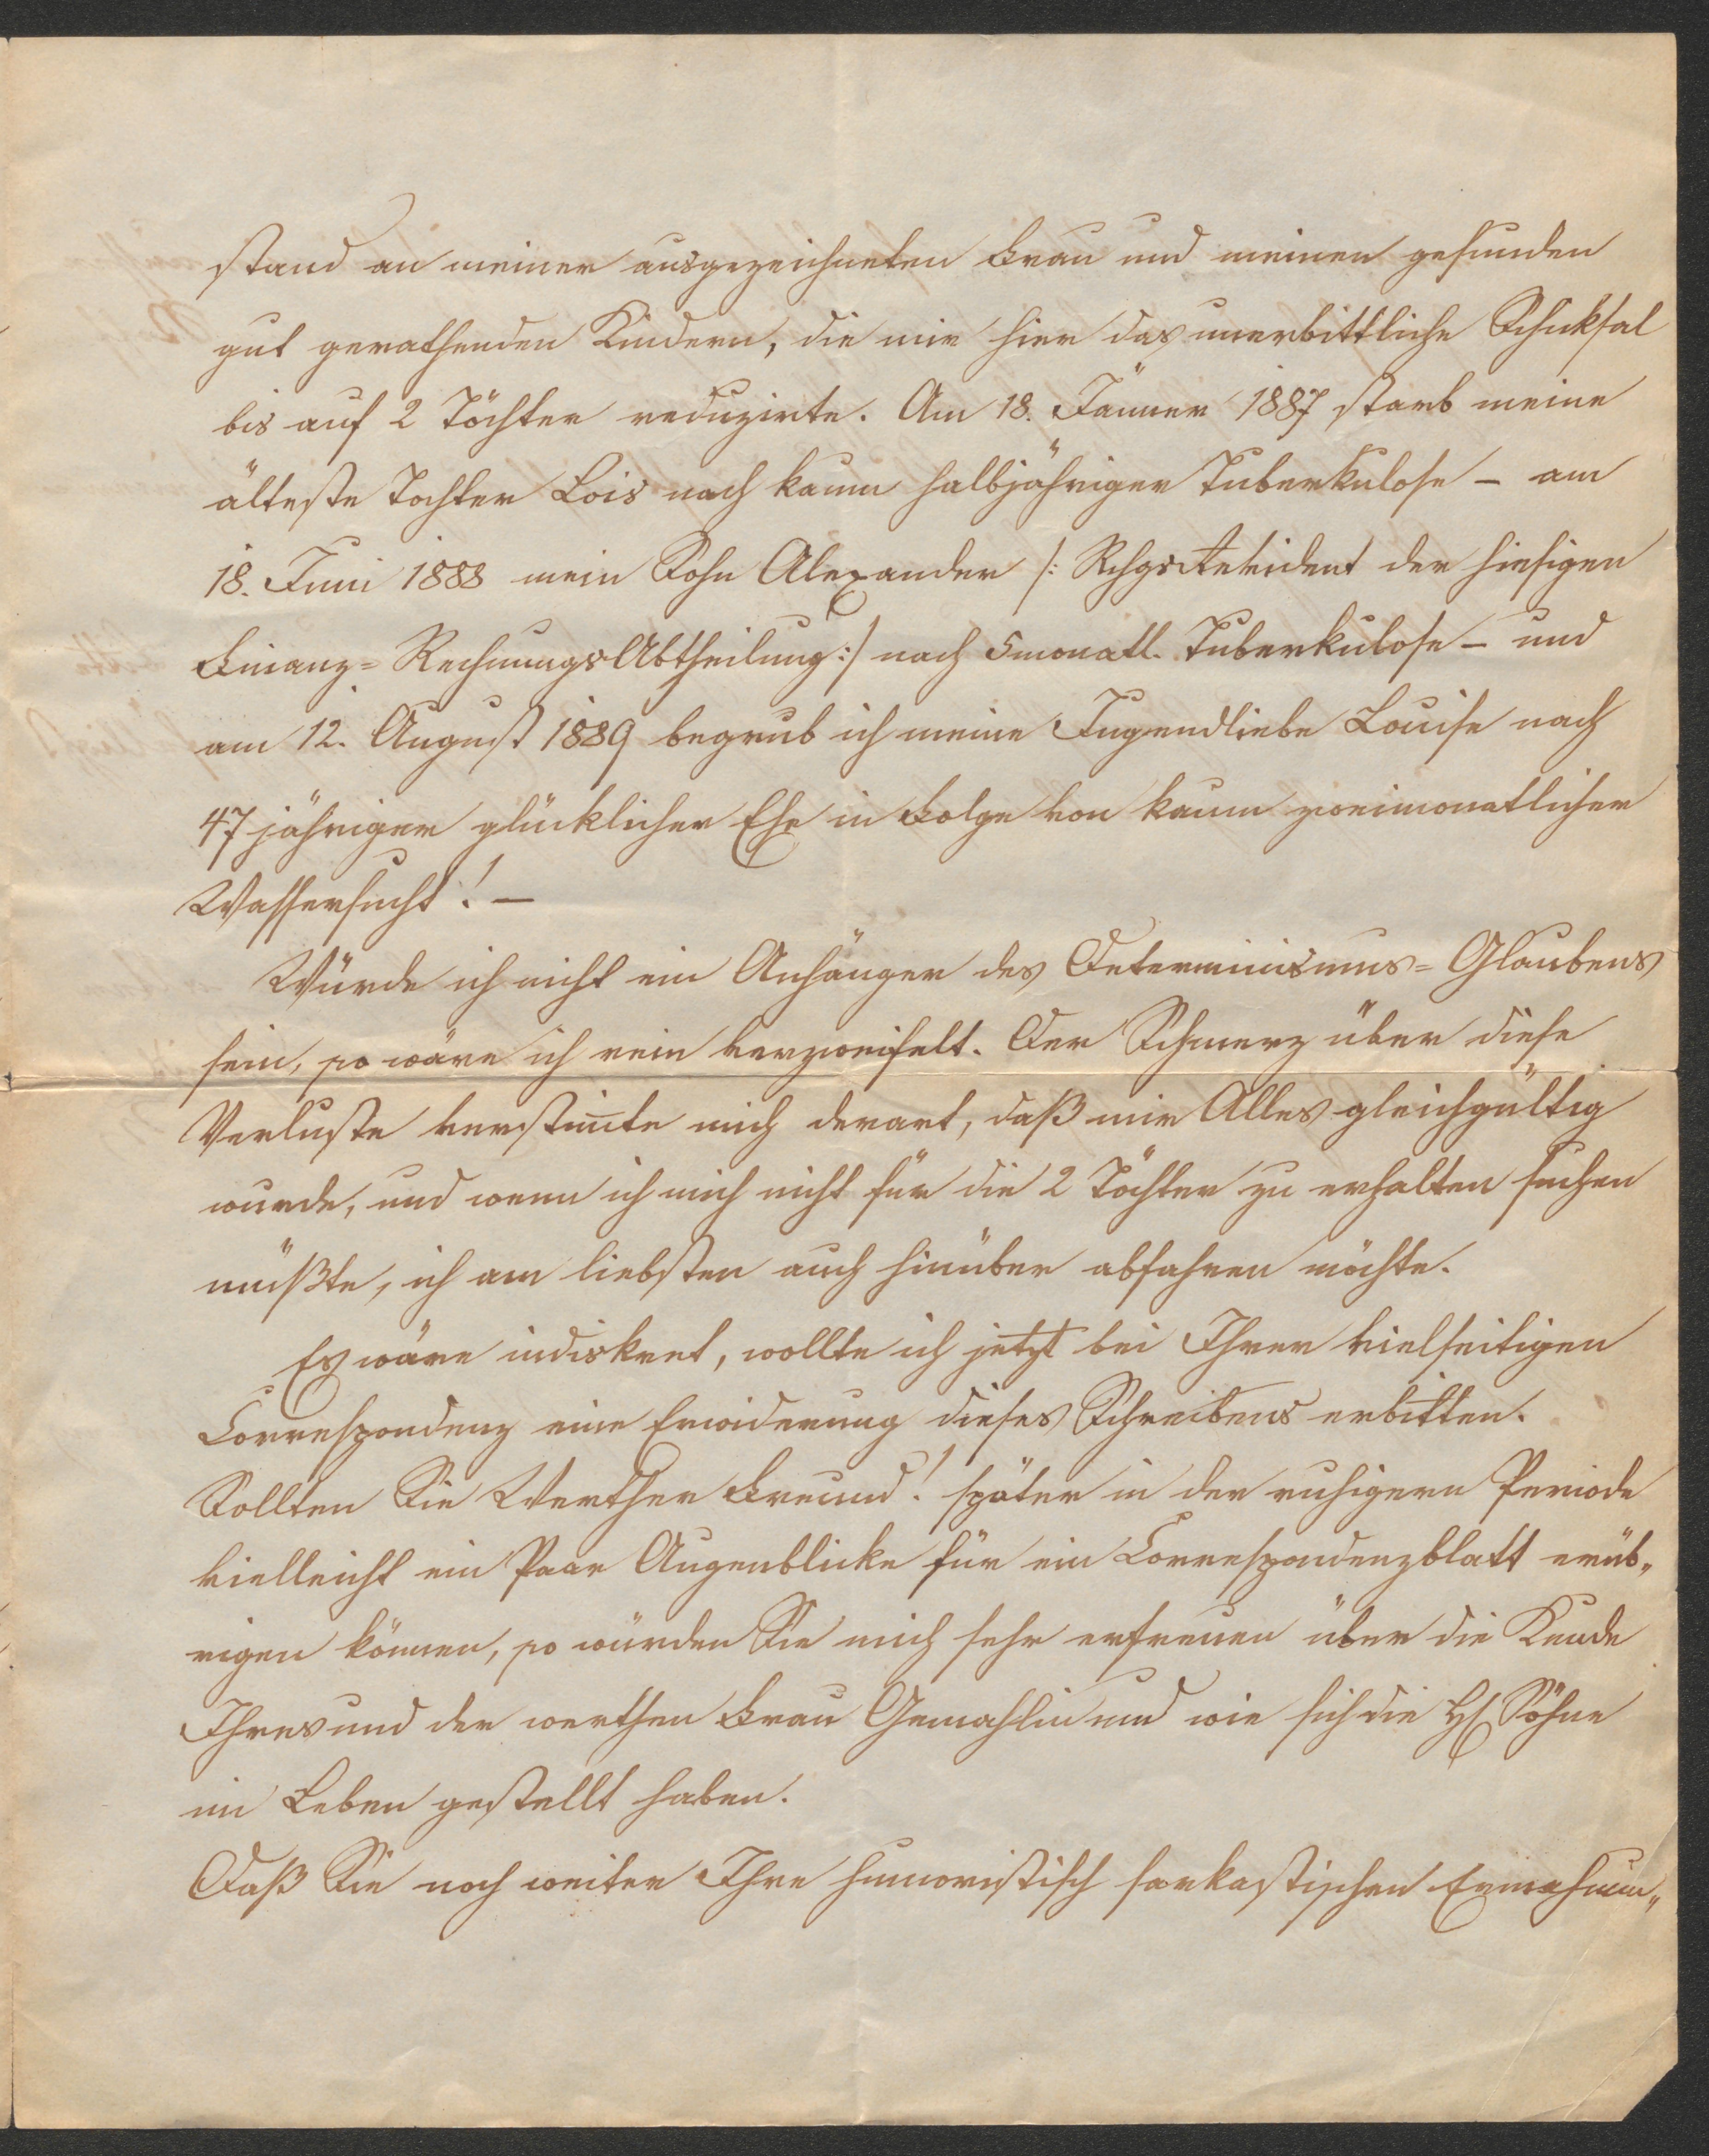 stand an meiner ausgezeichneten Frau und meinen gesunden
gut gerathenden Kindern, die mir hier das unerbittliche Schiksal
bis auf 2 Töchter reduzirte. Am 18. Jänner 1887 starb meine
älteste Tochter Lois nach kaum halbjähriger Tuberkulose – am
18. Juni 1888 mein Sohn Alexander /: der hiesigen
Finanz= RechnungsAbtheilung :/ nach 5monatl. Tuberkulose – und
am 12. August 1889 begrub ich meine Jugendliebe Louise nach
47jähriger glücklicher Ehe in Folge von kaum zweimonatlicher
Wassersucht! –
Würde ich nicht ein Anhänger des Determinismus=Glaubens
sein, so wäre ich rein verzweifelt. Der Schmerz über diese
Verluste verstim̅te mich derart, daß mir Alles gleichgültig
wurde, und wenn ich mich nicht für die 2 Töchter zu erhalten suchen
müßte, ich am liebsten auch hinüber abfahren möchte.
Es wäre indiskret, wollte ich jetzt bei Ihrer vielseitigen
Correspondenz eine Erwiderung dieses Schreibens erbitten.
Sollten Sie Werther Freund! später in der ruhigern Periode
vielleicht ein Paar Augenblicke für ein Correspondenzblatt erüb„
rigen können, so würden Sie mich sehr erfreuen über die Kunde
Ihres und der werthen Frau Gemahlin und wie sich die H. Söhne
im Leben gestellt haben.
Daß Sie noch weiter Ihre humoristisch sarkastischen Ermahnun„